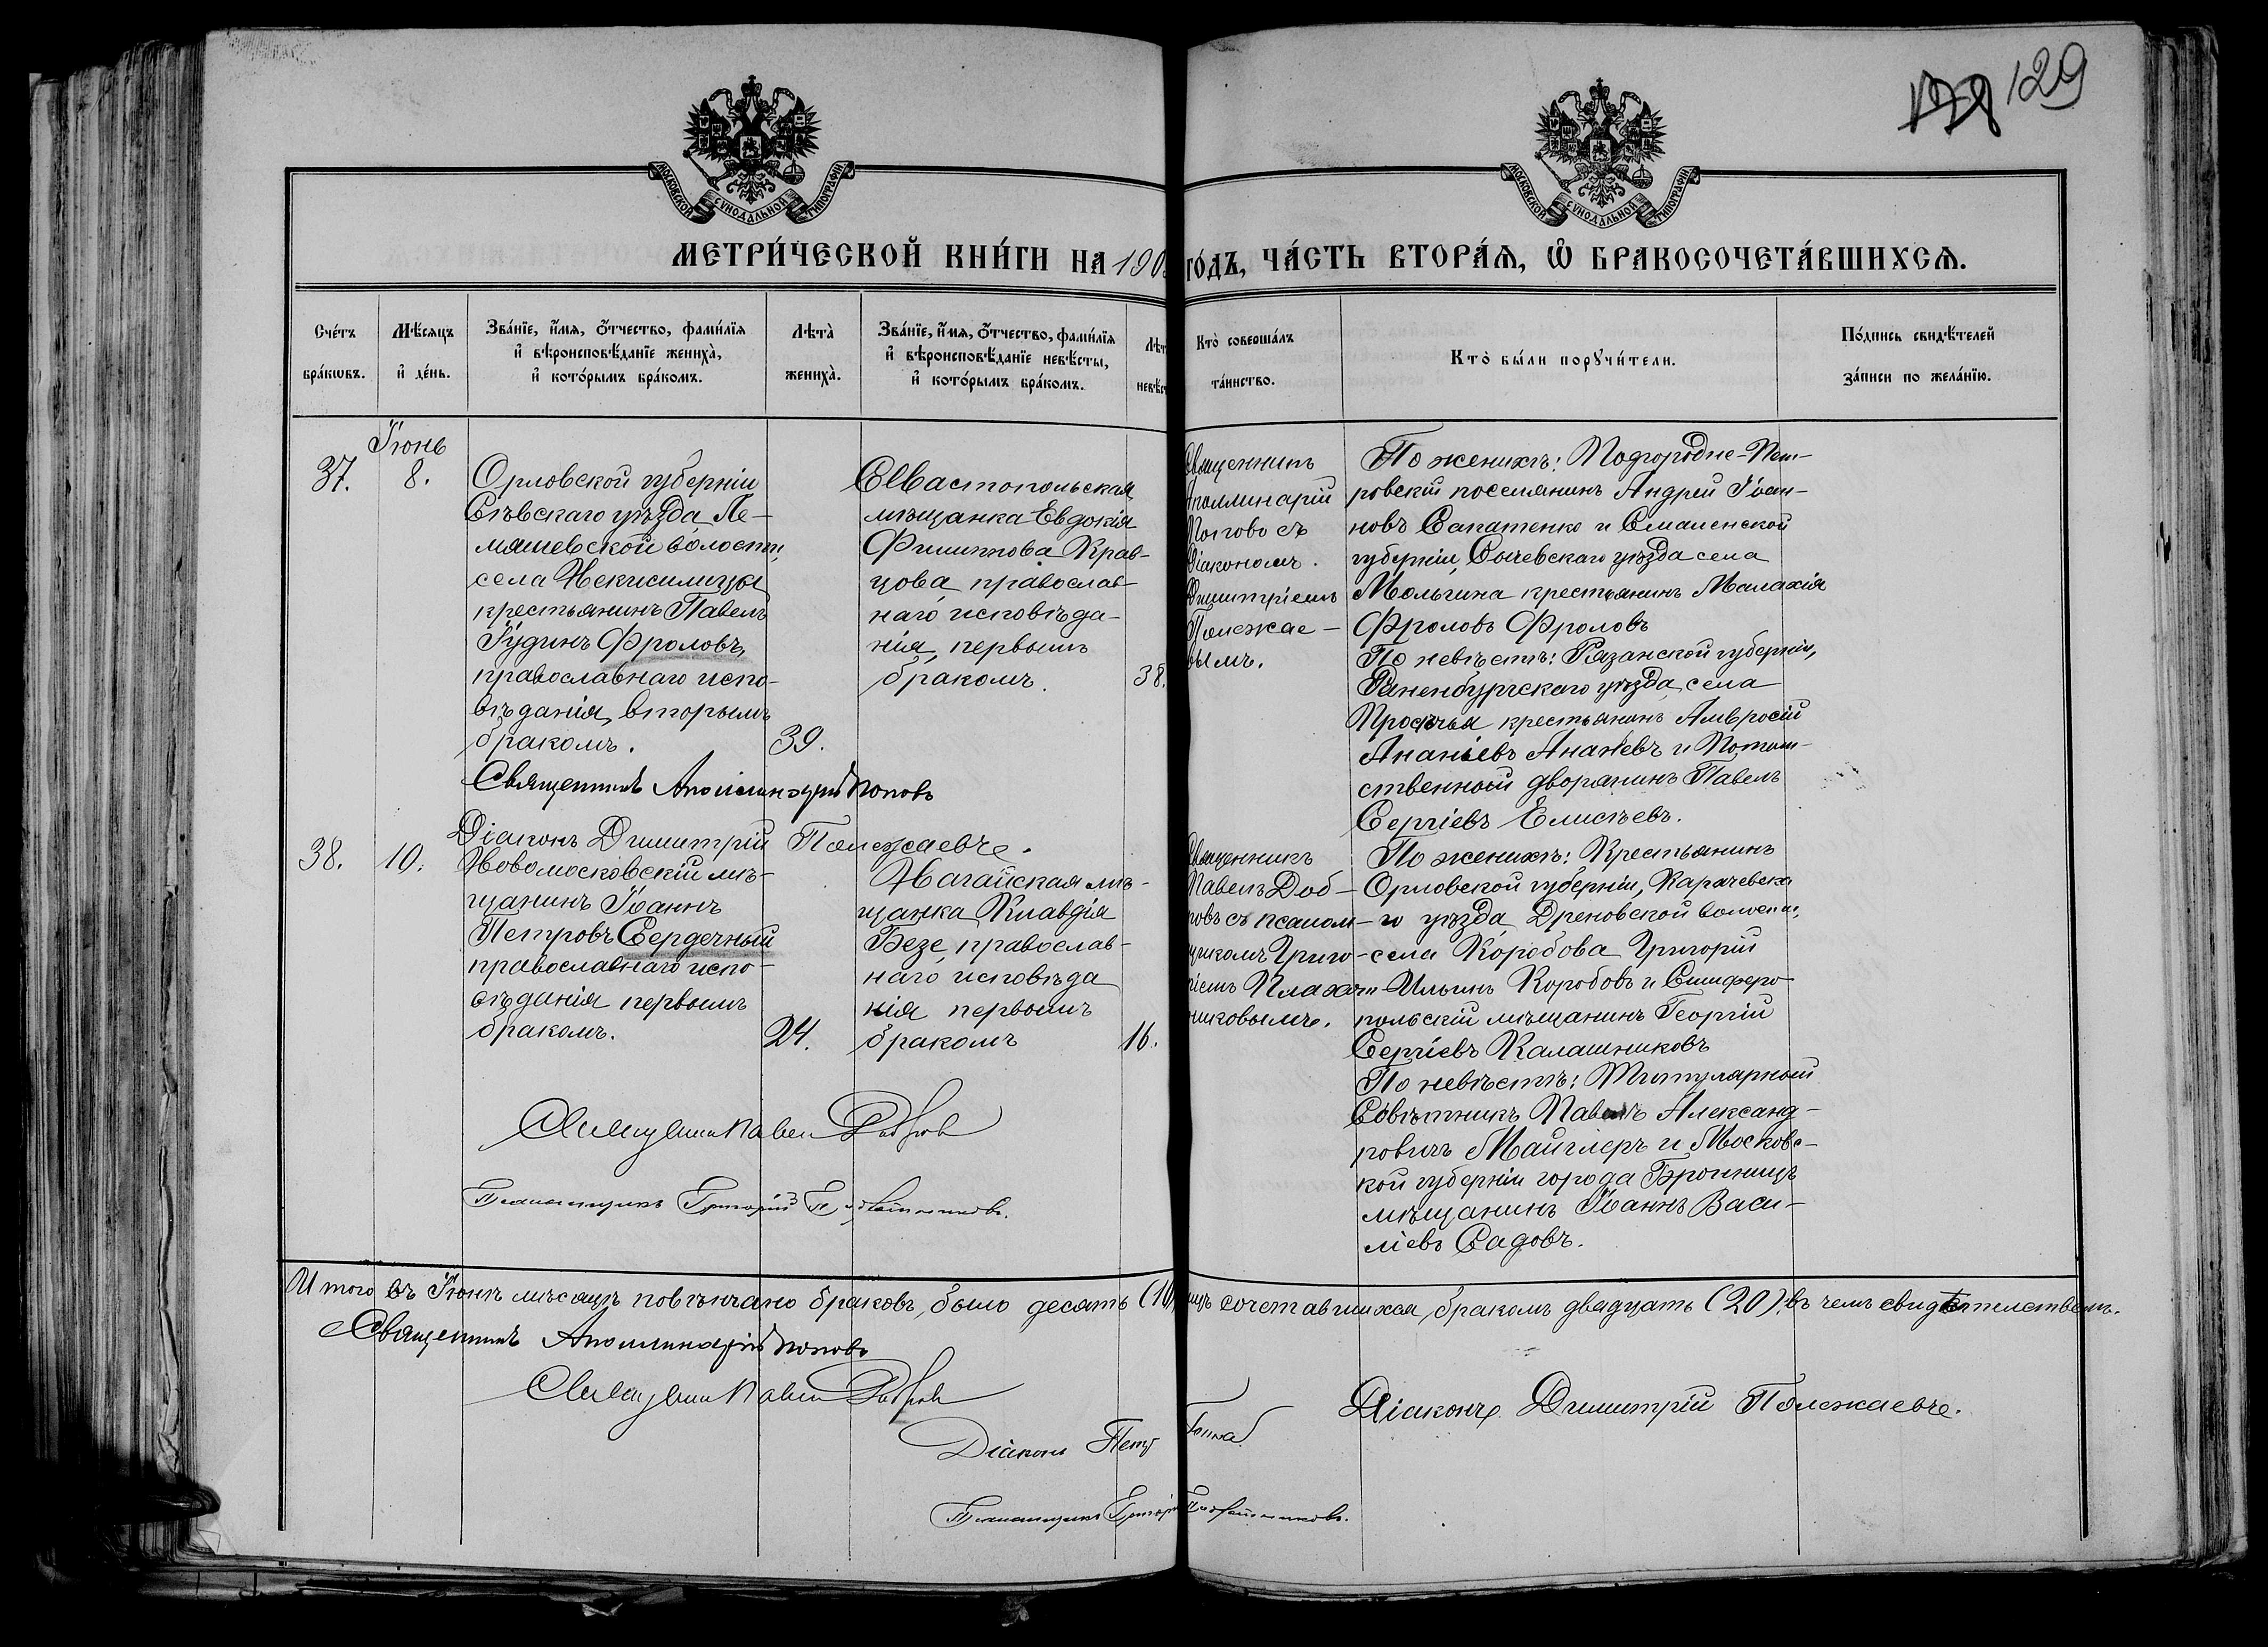 129
МОСКОВСКОЙ СѴНОДАЛЬНОЙ ТИПОГРАФІИ
МОСКОВСКОЙ СѴНОДАЛЬНОЙ ТИПОГРАФІИ
МЕТРИ́ЧЕСКОЙ КНИ́ГИ НА 190 ГО́ДЪ, ЧА́СТЬ ВТОРА́Ѧ, Ѽ БРАКОСОЧЕТА́ВШИХСѦ.
Сче́тъ
бра́кѡвъ.
Мѣ́сяцъ
и҆ де́нь.
Зва́нїе, и҆́мя, ѻ҆́тчество, фами́лїя
и҆ вѣроисповѣ́данїе жениха̀,
и҆ кото́рымъ бра́комъ.
Лѣта̀
жениха̀.
Зва́нїе, и҆́мя, ѻ҆́тчество, фами́лїя
и҆ вѣроисповѣ́данїе невѣ́сты,
и҆ кото́рымъ бра́комъ.
Лѣт
невѣс
Кто̀ соверша́лъ
та́инство.
Кто̀ бы́ли порꙋчи́тели.
По́дпись свидѣ́телей
за́писи по жела́нїю.
37.
Іюнь
8.
Орловской губерніи
Сѣвскаго уѣзда Ле-
мяшевской волости,
села Некислицы
крестьянинъ Павелъ
Іудинъ Фроловъ,
православнаго испо-
вѣданія, вторымъ
бракомъ.
39.
Севастопольская
мѣщанка Евдокія
Филиппова Крав-
цова православ-
наго исповѣда-
нія, первымъ
бракомъ.
38.
Священникъ
Аполлинарій
Попово съ
діакономъ
Димитріемъ
Полежае-
вымъ.
По женихѣ: Подгородне-Пет-
ровскій поселянинъ Андрей Іоан-
новъ Сапатенко и Смоленской
губерніи, Сычевскаго уѣзда села
Мольгина крестьянинъ Малахія
Фроловъ Фроловъ
По невѣстѣ: Рязанской губерніи,
Раненбургскаго уѣзда, села
крестьянинъ Амвросій
Ананьевъ Ананьевъ и Потом-
ственный дворянинъ Павелъ
Сергіевъ Елисѣевъ.
Священникъ Аполлинарій Поповъ
Діаконъ Димитрій Полежаевъ.
38.
10.
Новомосковскій мѣ-
щанинъ Іоаннъ
Петровъ Сердечный
православнаго испо-
вѣданія первымъ
бракомъ.
24.
Ногайская мѣ-
щанка Клавдія
Безе, православ-
наго исповѣда
нія первымъ
бракомъ
16.
Священникъ
Павелъ Доб-
ровъ съ псалом-
щикомъ Григо-
ріемъ
никовымъ.
По женихѣ: Крестьянинъ
Орловской губерніи, Карачевска
го уѣзда, Дроновской волости,
села Коробова Григорій
Ильинъ Коробовъ и Симферо-
польскій мѣщанинъ Георгій
Сергіевъ Калашниковъ
По невѣстѣ: Титулярный
Совѣтникъ Павелъ Александ-
ровичъ Майглеръ и Московс-
кой губерніи города Бронницъ
мѣщанинъ Іоаннъ Васи-
ліевъ Садовъ.
Священникъ Павелъ Добровъ
Псаломщикъ Григорій
Итого въ Іюнѣ мѣсяцѣ повѣнчано браковъ было десять (10) лицъ сочетавшихся бракомъ двадцать (20), въ чемъ свидѣтельствуемъ.
Священникъ Аполлинарій Поповъ
Священникъ Павелъ Добровъ
Діаконъ Димитрій Полежаевъ.
Діаконъ Петръ
Псаломщикъ Григорій